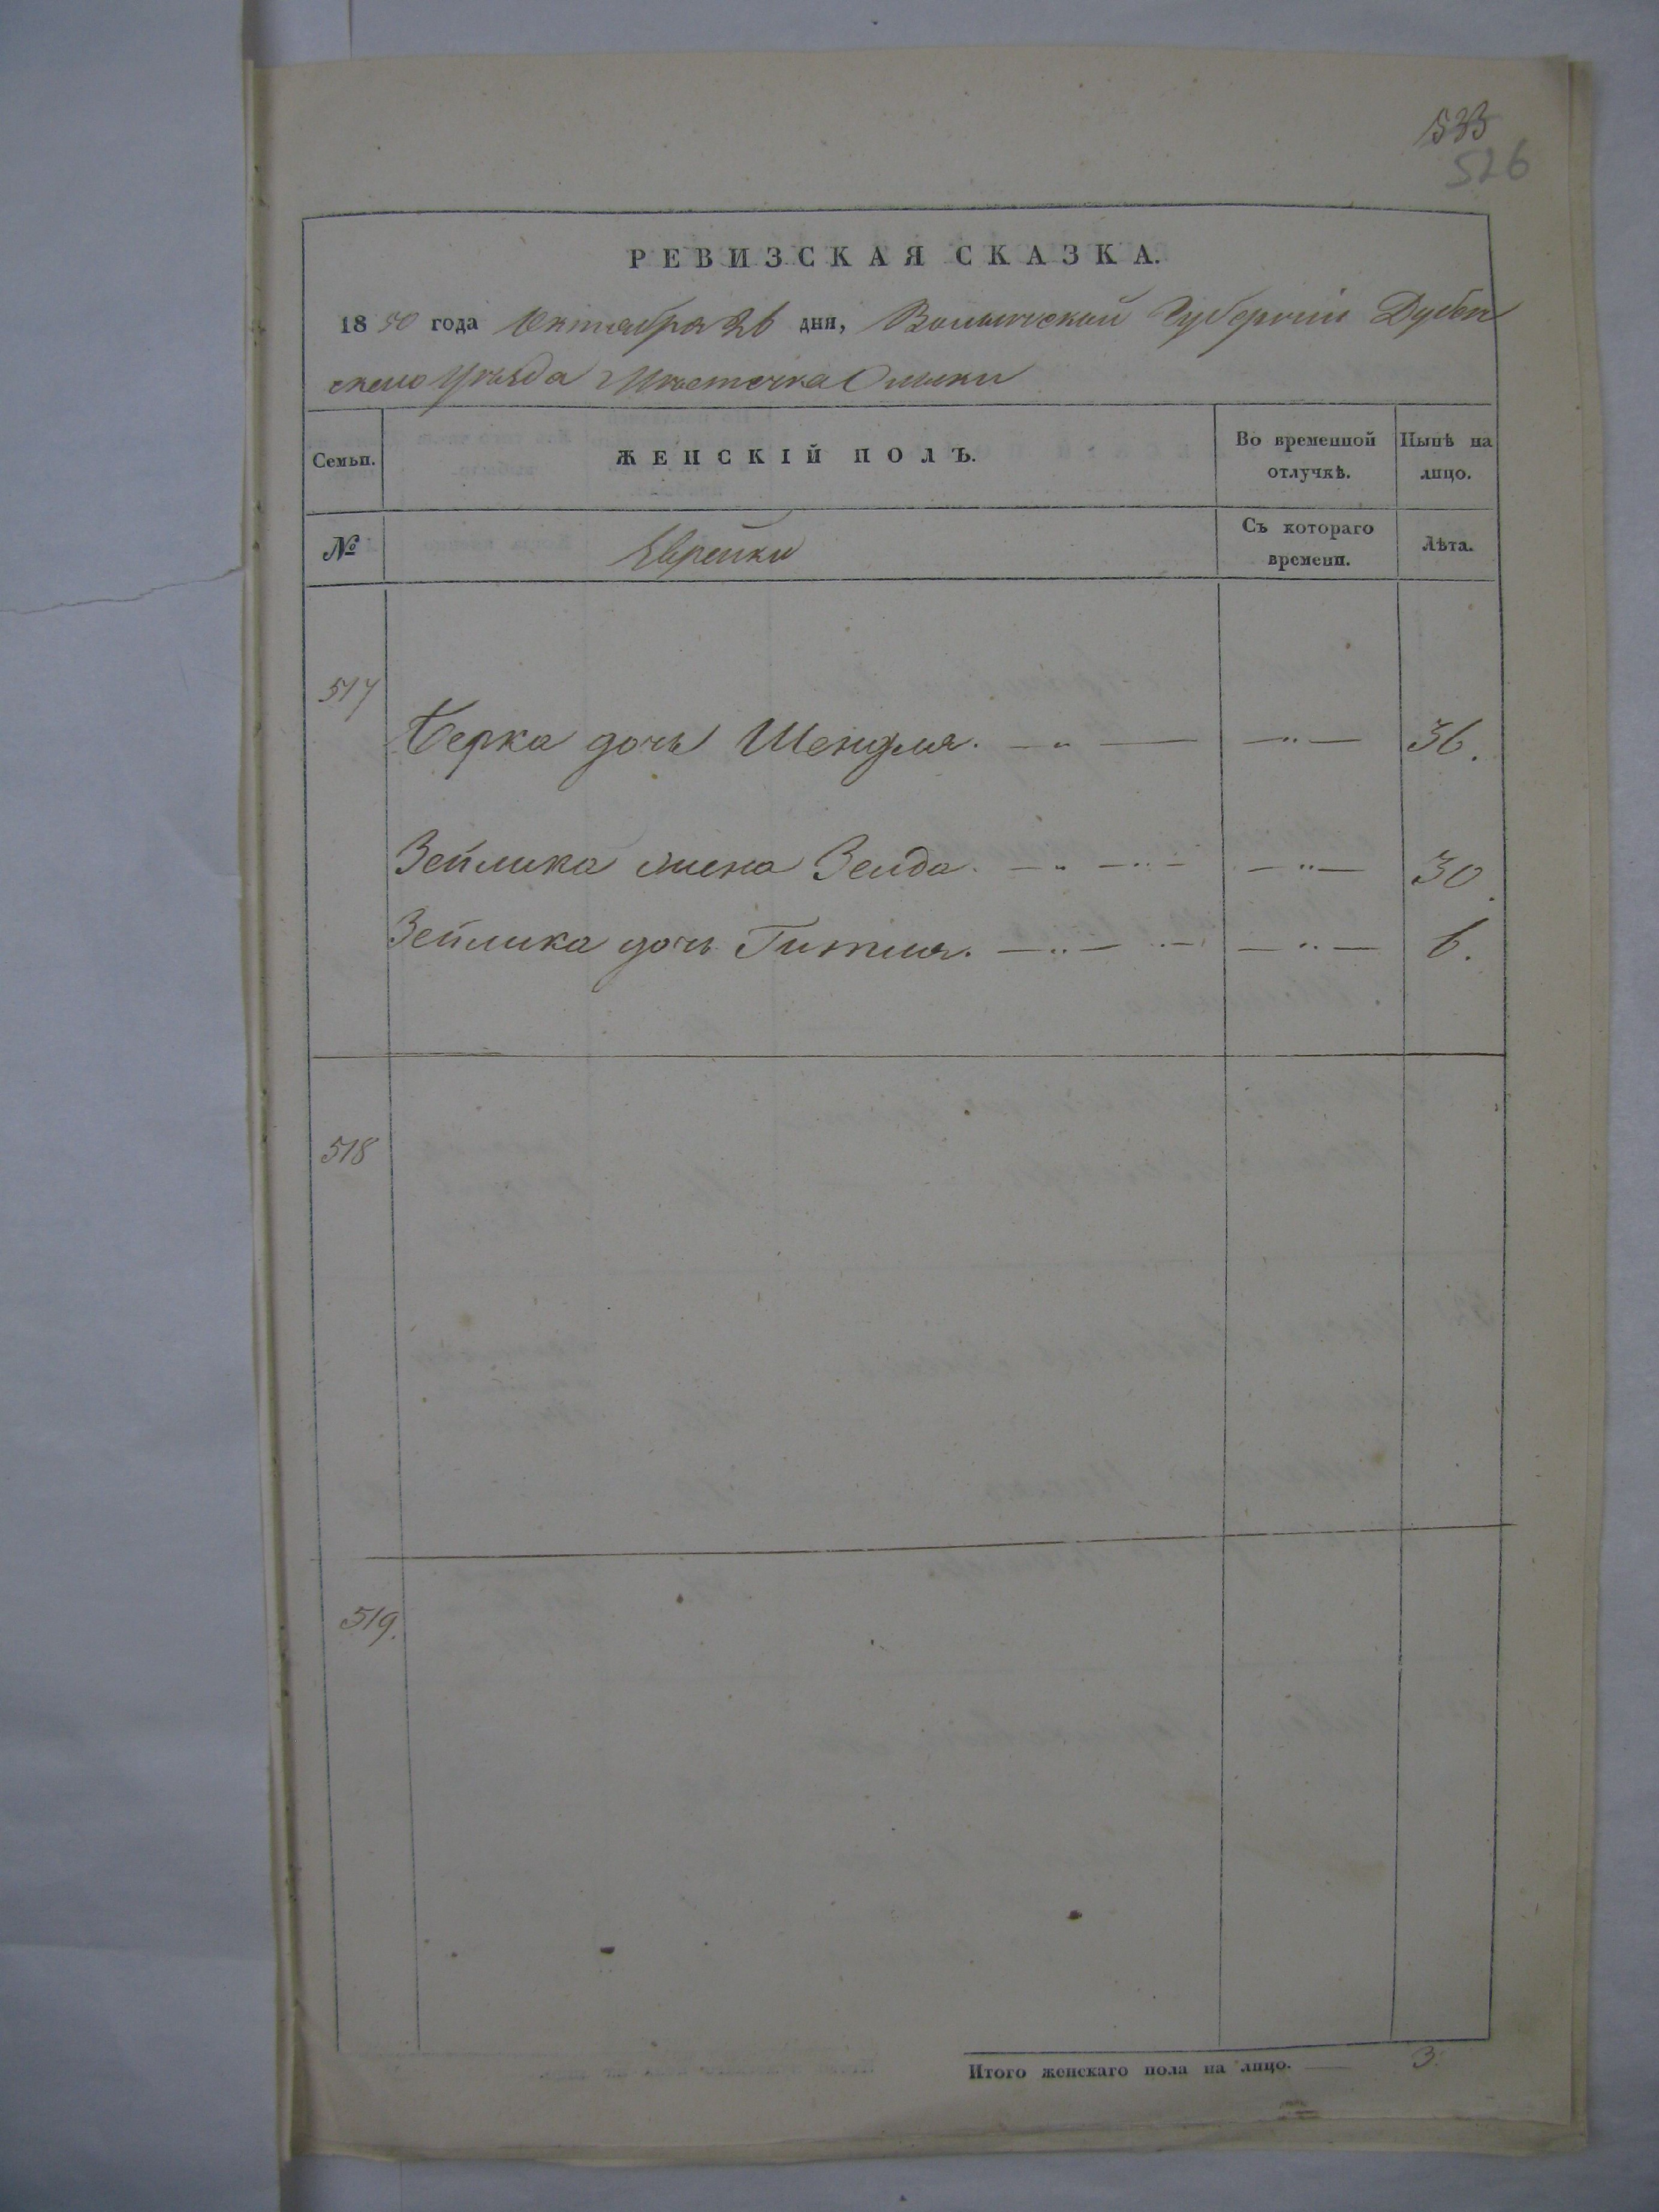 533
526
РЕВИЗСКАЯ СКАЗКА.
1850 года Октября 26 дня, Волынской Губернии Дубен
скаго Уѣзда Мѣстечка Олыки
Семьи. ЖЕНСКІЙ ПОЛЪ. Во временной отлучкѣ. Нынѣ на лицо.
№ Еврейки Съ котораго времени. Лѣта.
517
Берка дочь Шендля. — „ — — „ — 36.
Зейлика жена Зелда. — „ — „ — — „ — 30.
Зейлика дочь Гитля. — „ — „ — — „ — 6.
518
519.
Итого женскаго пола на лицо. — 3.